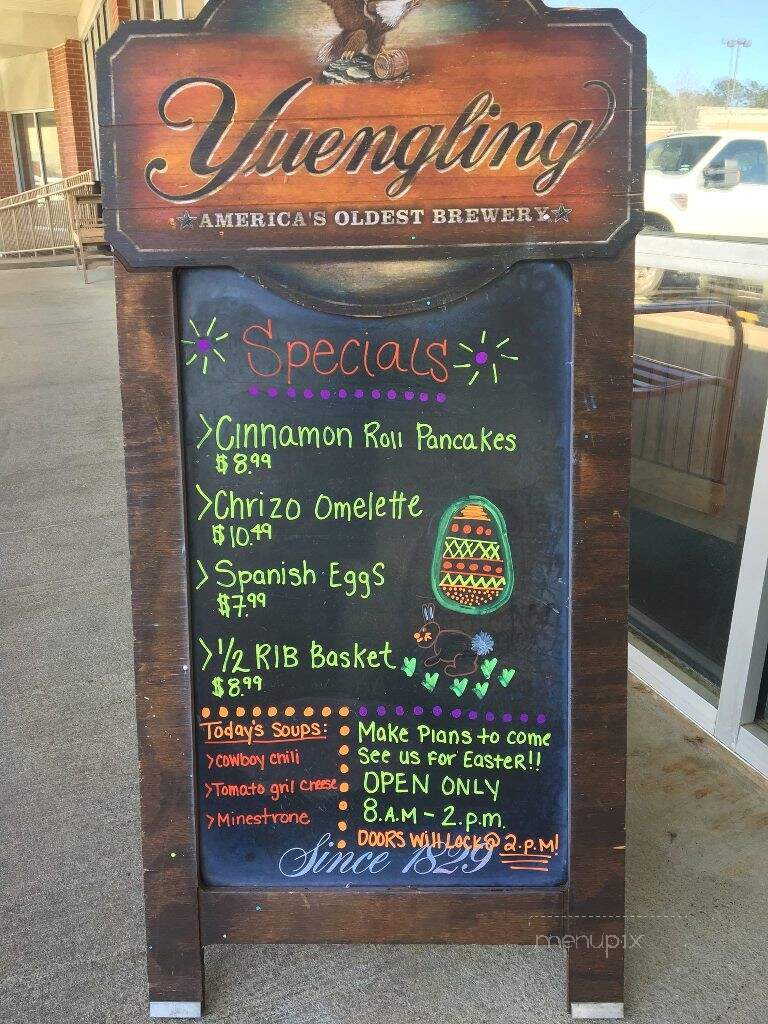 Yuengling
AMERICA'S OLDEST BREWERY
Specials
>Cinnamon Roll Pancakes
$8.99
>Chrizo Omelette
$10.49
>Spanish Eggs
$7.99
>1/2 RIB Basket
$8.99
Today's Soups:
>cowboy chili
>Tomato gril cheese
>Minestrone
Make Plans to come
See us For Easter!!
OPEN ONLY
8.A.M - 2.p.m.
DOORS Will LOCK@ 2.P.M!
Since 1829
menupix